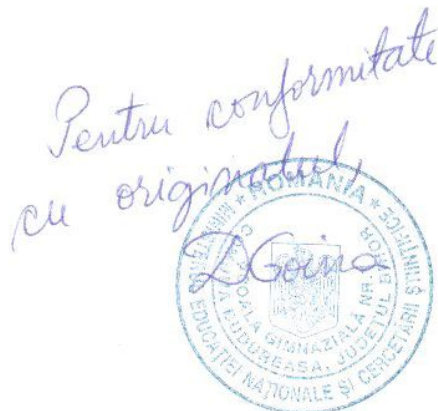 Pentru conformitate
cu originalul,
DGoina
* ROMÂNIA *
MINISTERUL EDUCAȚIEI NAȚIONALE ȘI CERCETĂRII ȘTIINȚIFICE
ȘCOALA GIMNAZIALĂ NR.
BUDUREASA, JUDEȚUL BIHOR